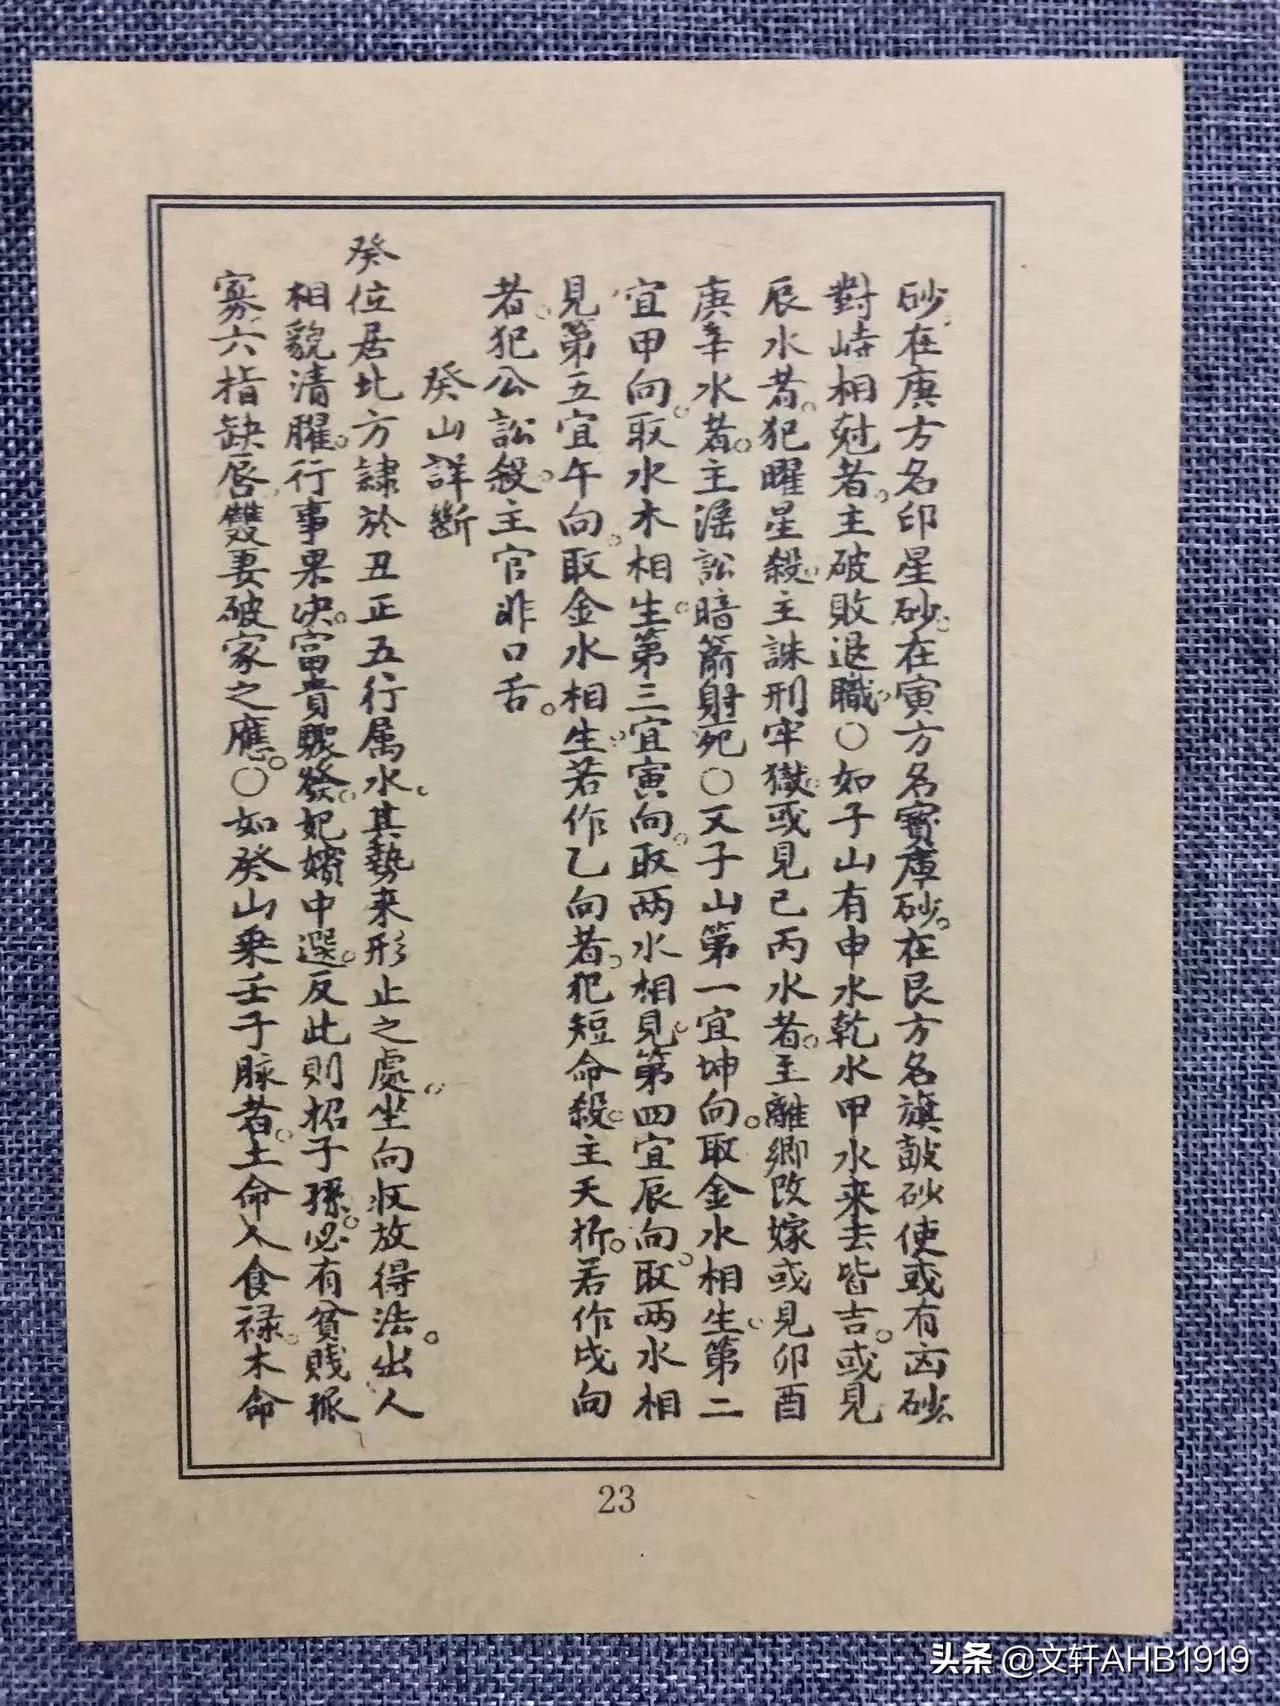 砂在庚方名印星砂。在寅方名寶庫砂。在艮方名旗鼓砂使或有凶砂。
對峙相尅者。主破敗退職。〇如子山有申水乾水甲水来去皆吉。或見
辰水者。犯曜星殺。主誅刑牢獄。或見己丙水者。主離鄉改嫁或見卯酉
庚辛水者。主淫訟暗箭射死〇又子山第一宜坤向。取金水相生。第二
宜甲向。取水木相生。第三宜寅向。取两水相見。第四宜辰向。取两水相
見第五宜午向。取金水相生。若作乙向者。犯短命殺。主夭折。若作戌向
者。犯公訟殺。主官非口舌。
癸山詳斷
癸位居北方隷於丑正五行属水。其勢来形止之處。坐向收放得法。出人
相貌清臞。行事果决。富貴驟發。妃嬪中選。反此則招子孫。必有貧賤孤
寡六指缺唇雙妻破家之應。〇如癸山乘壬子脉者。土命人食禄。木命
23
头条 @文轩AHB1919